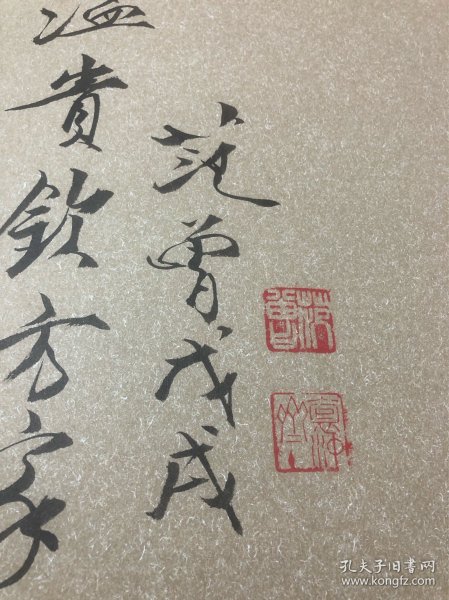 溢貴欽方家
范曾戊戌
范曾
孔夫子旧书网
www.kongfz.com